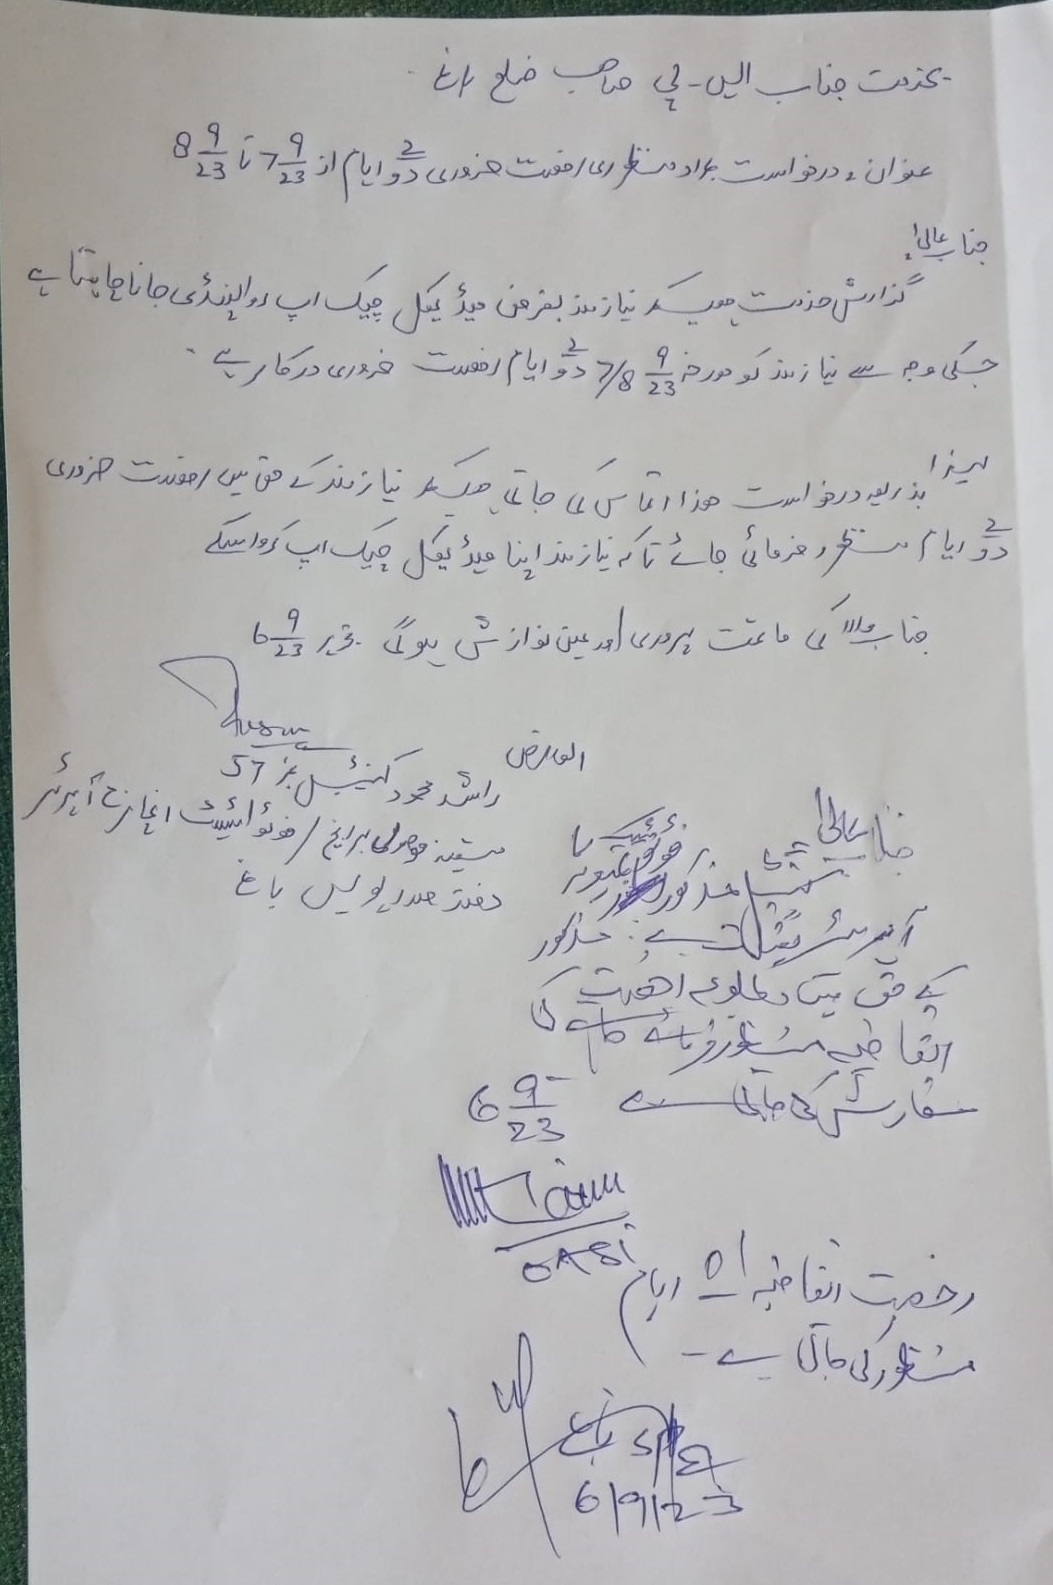 بخدمت جناب ایس۔پی صاحب ضلع باغ
عنوان: درخواست بمراد منظوری رخصت ضروری 2 دو ایام از 7 9/23 تا 8 9/23
جناب عالی!
گذارش خدمت ہیکہ نیازمند بغرض میڈیکل چیک اپ راولپنڈی جانا چاہتا ہے
جسکی وجہ سے نیازمند کو مورخہ 7/8 9/23 2 دو ایام رخصت ضروری درکار ہے
لہذا بذریعہ درخواست ھذا التماس کی جاتی ہیکہ نیازمند کے حق میں رخصت ضروری
2 دو ایام منظور فرمائی جائے تاکہ نیازمند اپنا میڈیکل چیک اپ کرواسکے
جناب والا کی ماتحت پروری اور عین نوازش ہوگی۔ تحریر 6 9/23
العارض
راشد محمود کنسٹیبل نمبر 57
دفتر صدر پولیس باغ
جناب عالی!
مذکور
آپریٹر تعینات ہے۔ مذکور
کے حق میں مطلوبہ رخصت
اتفاقیہ منظور فرمائے جانے کی
سفارش کی جاتی ہے 6 9/23
OASI
رخصت اتفاقیہ ایام
منظور کی جاتی ہے۔
باغ
6/9/23